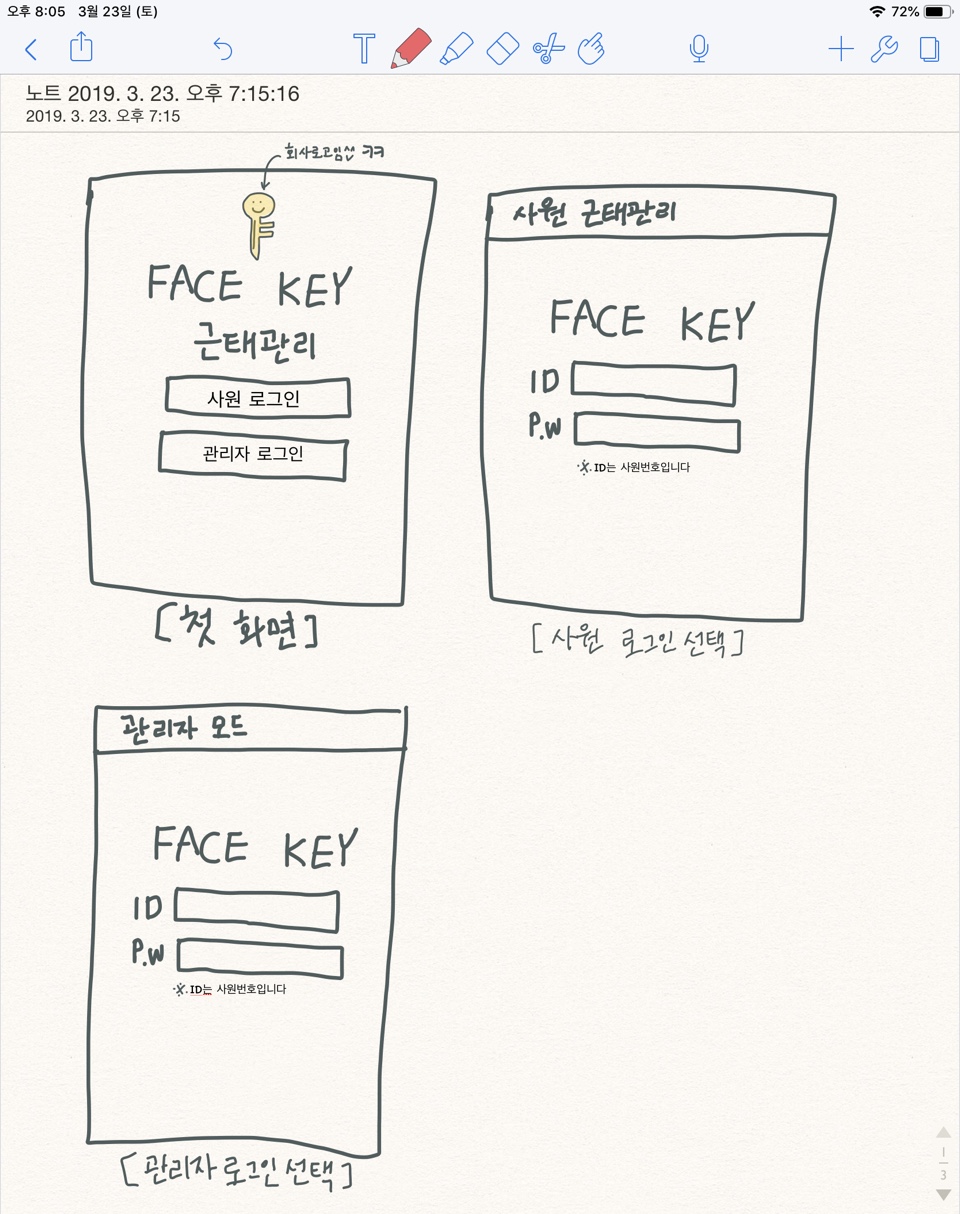 오후 8:05 3월 23일 (토) 72%
노트 2019. 3. 23. 오후 7:15:16
2019. 3. 23. 오후 7:15
회사로고임ㅋㅋ
FACE KEY
근태관리
사원 로그인
관리자 로그인
[첫 화면]
사원 근태관리
FACE KEY
ID
P.W
※.ID는 사원번호입니다
[사원 로그인 선택]
관리자 모드
FACE KEY
ID
P.W
※.ID는 사원번호입니다
[관리자 로그인 선택]
1
3